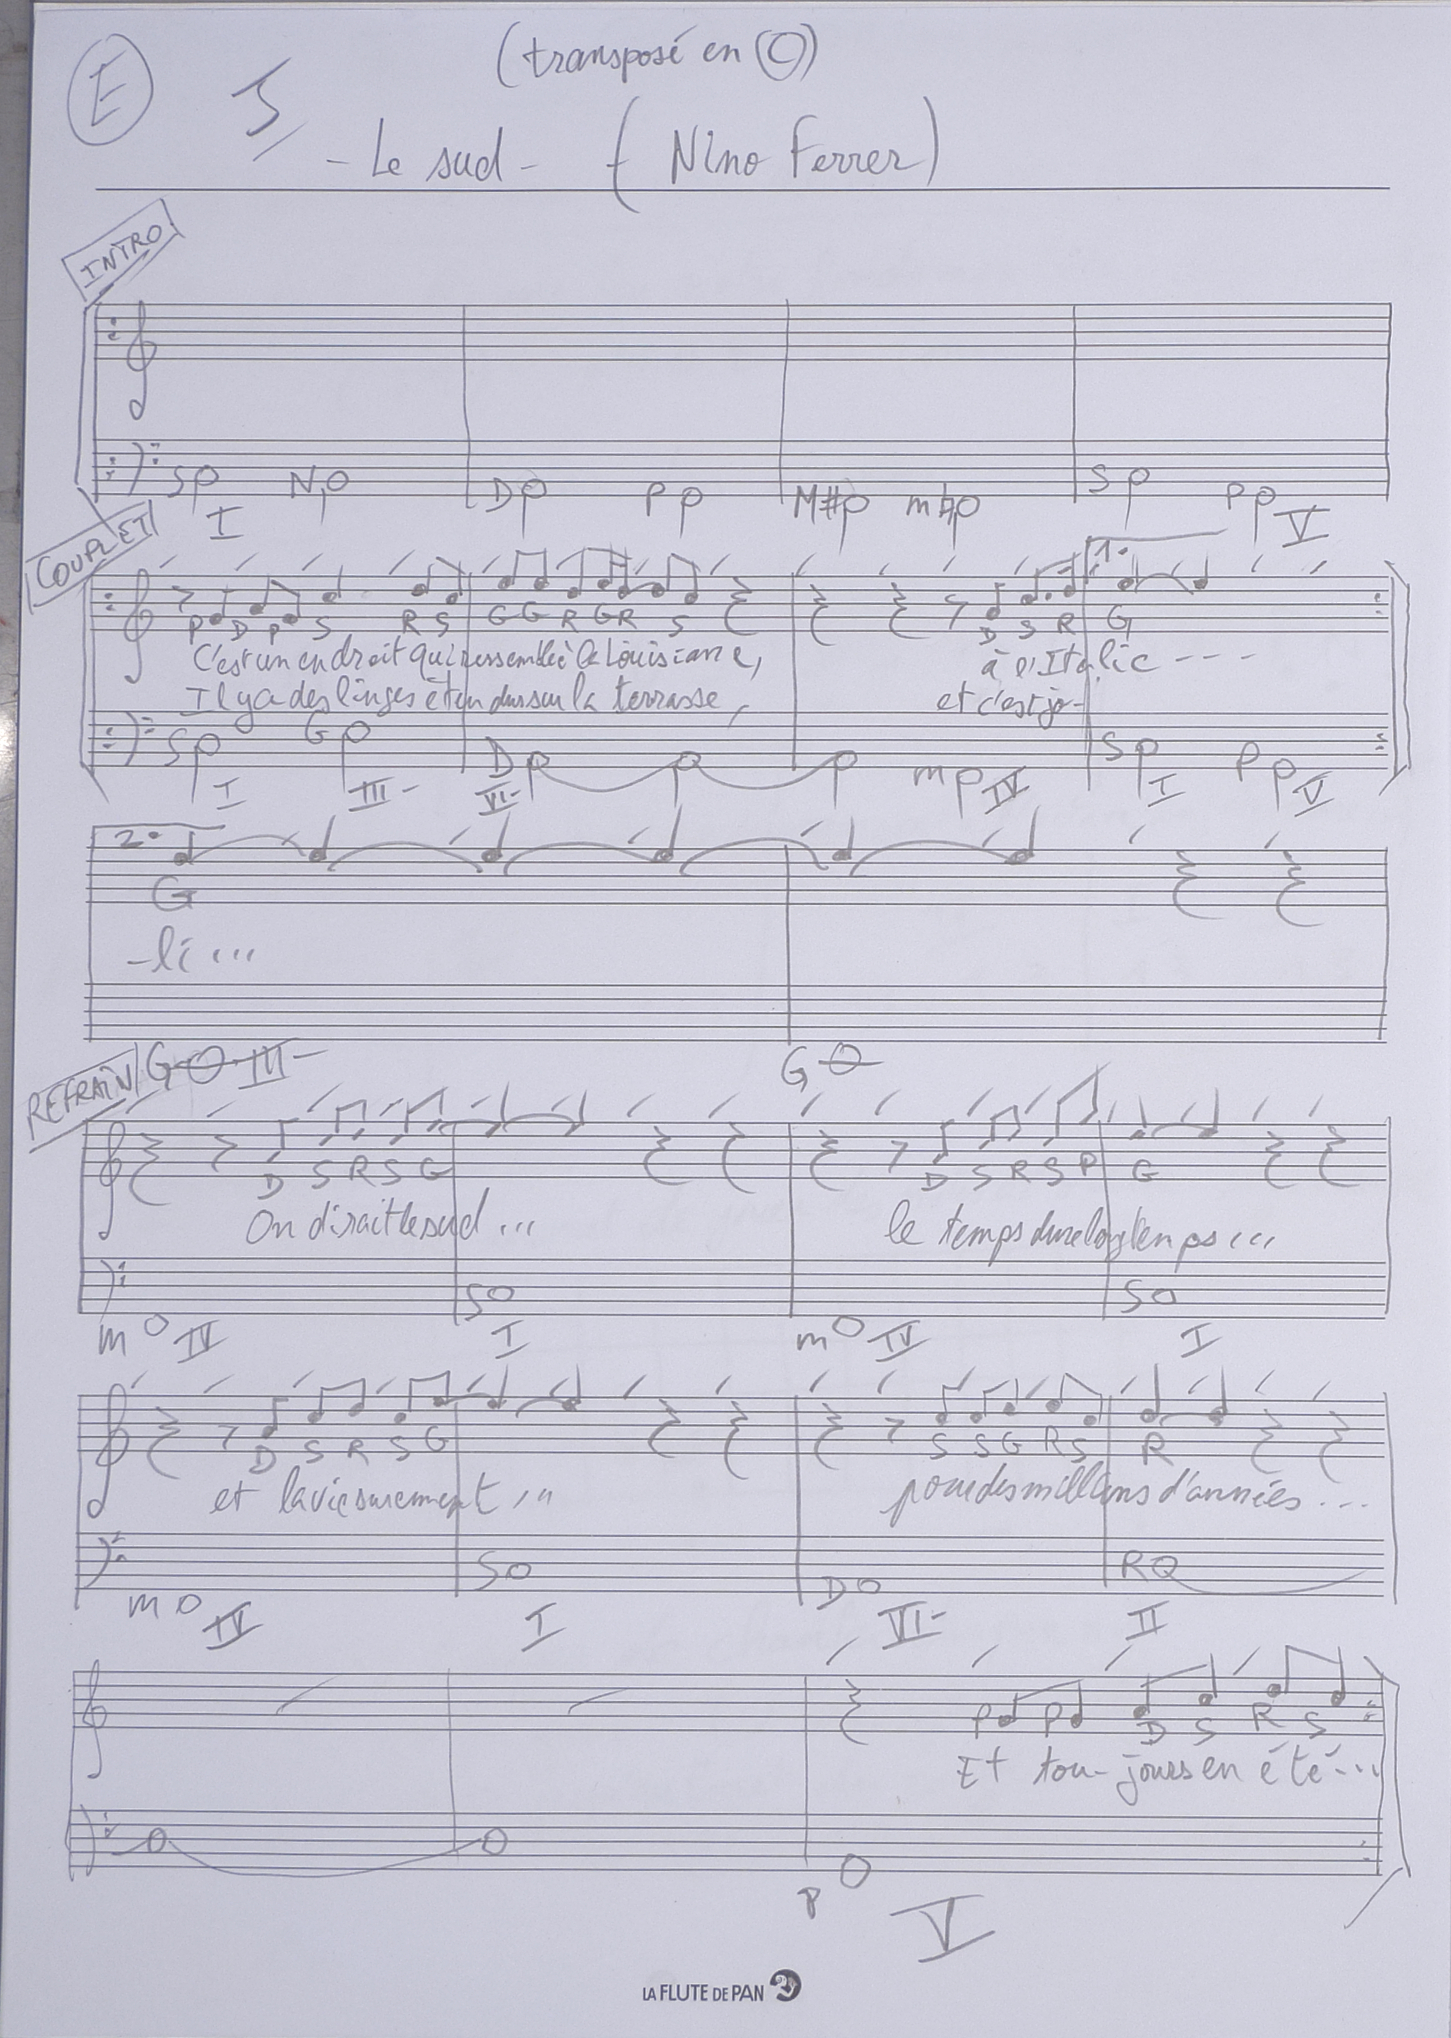 (transposé en C)
E
- Le sud - (Nino Ferrer)
INTRO
S N D P M# m♮ S P
I V
COUPLET 1.
P D P S R S G G R G R S D S R G
C'est un endroit qui ressemble à la Louisiane, à l'Italie ---
Il y a des linges étendus sur la terrasse, et c'est jo-
S G D m S P
I III- VI- IV I V
2.
G
-li ...
REFRAIN G III- G
D S R S G D S R S P G
On dirait le sud ... le temps dure longtemps ...
m IV S I m IV S I
D S R S G S S G R S R
et la vie surement ... pour des millions d'années ...
m S D R
IV I VI- II
P P D S R S
Et tou-jours en été ...
P V
LA FLUTE DE PAN